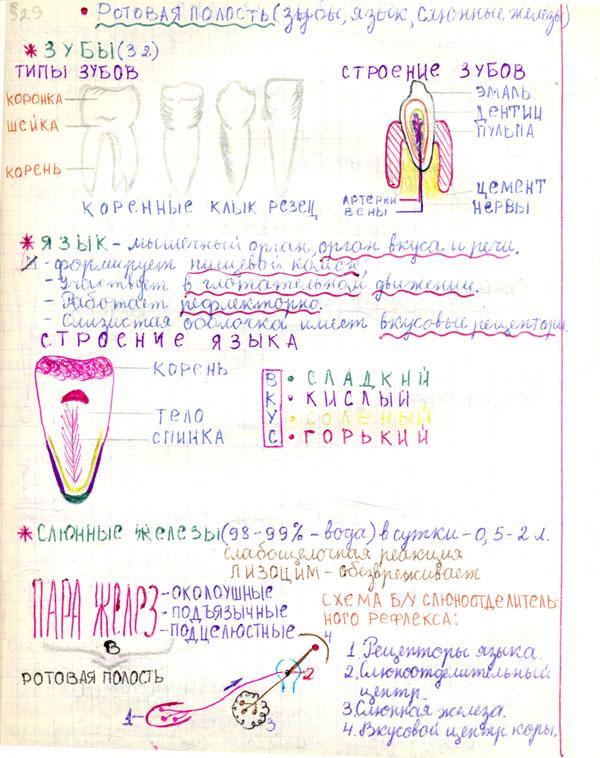 §29
• РОТОВАЯ ПОЛОСТЬ (зубы, язык, слюнные железы)
* ЗУБЫ (32)
ТИПЫ ЗУБОВ
КОРОНКА
ШЕЙКА
КОРЕНЬ
КОРЕННЫЕ КЛЫК РЕЗЕЦ
СТРОЕНИЕ ЗУБОВ
ЭМАЛЬ
ДЕНТИН
ПУЛЬПА
ЦЕМЕНТ
НЕРВЫ
АРТЕРИИ
ВЕНЫ
* ЯЗЫК – мышечный орган, орган вкуса и речи.
- формирует пищевой комок
- Участвует в глотательном движении.
- Работает рефлекторно.
- Слизистая оболочка имеет вкусовые рецепторы.
СТРОЕНИЕ ЯЗЫКА
КОРЕНЬ
ТЕЛО
СПИНКА
ВКУС
• СЛАДКИЙ
• КИСЛЫЙ
• СОЛЁНЫЙ
• ГОРЬКИЙ
* СЛЮННЫЕ ЖЕЛЕЗЫ (98-99% – вода) в сутки – 0,5-2 л.
слабощелочная реакция
ЛИЗОЦИМ – обезвреживает
ПАРА ЖЕЛЕЗ
- ОКОЛОУШНЫЕ
- ПОДЪЯЗЫЧНЫЕ
- ПОДЧЕЛЮСТНЫЕ
В
РОТОВАЯ ПОЛОСТЬ
СХЕМА Б/У СЛЮНООТДЕЛИТЕЛЬ-
НОГО РЕФЛЕКСА:
1. Рецепторы языка.
2. Слюноотделительный
центр.
3. Слюнная железа.
4. Вкусовой центр коры.
1
2
3
4